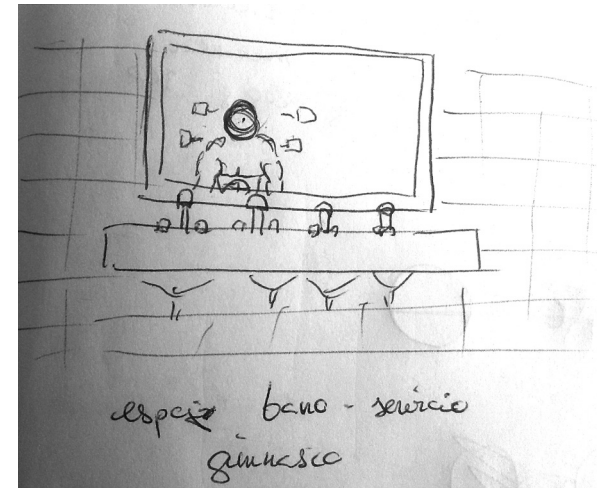 espejo bano - servicio
gimnasio